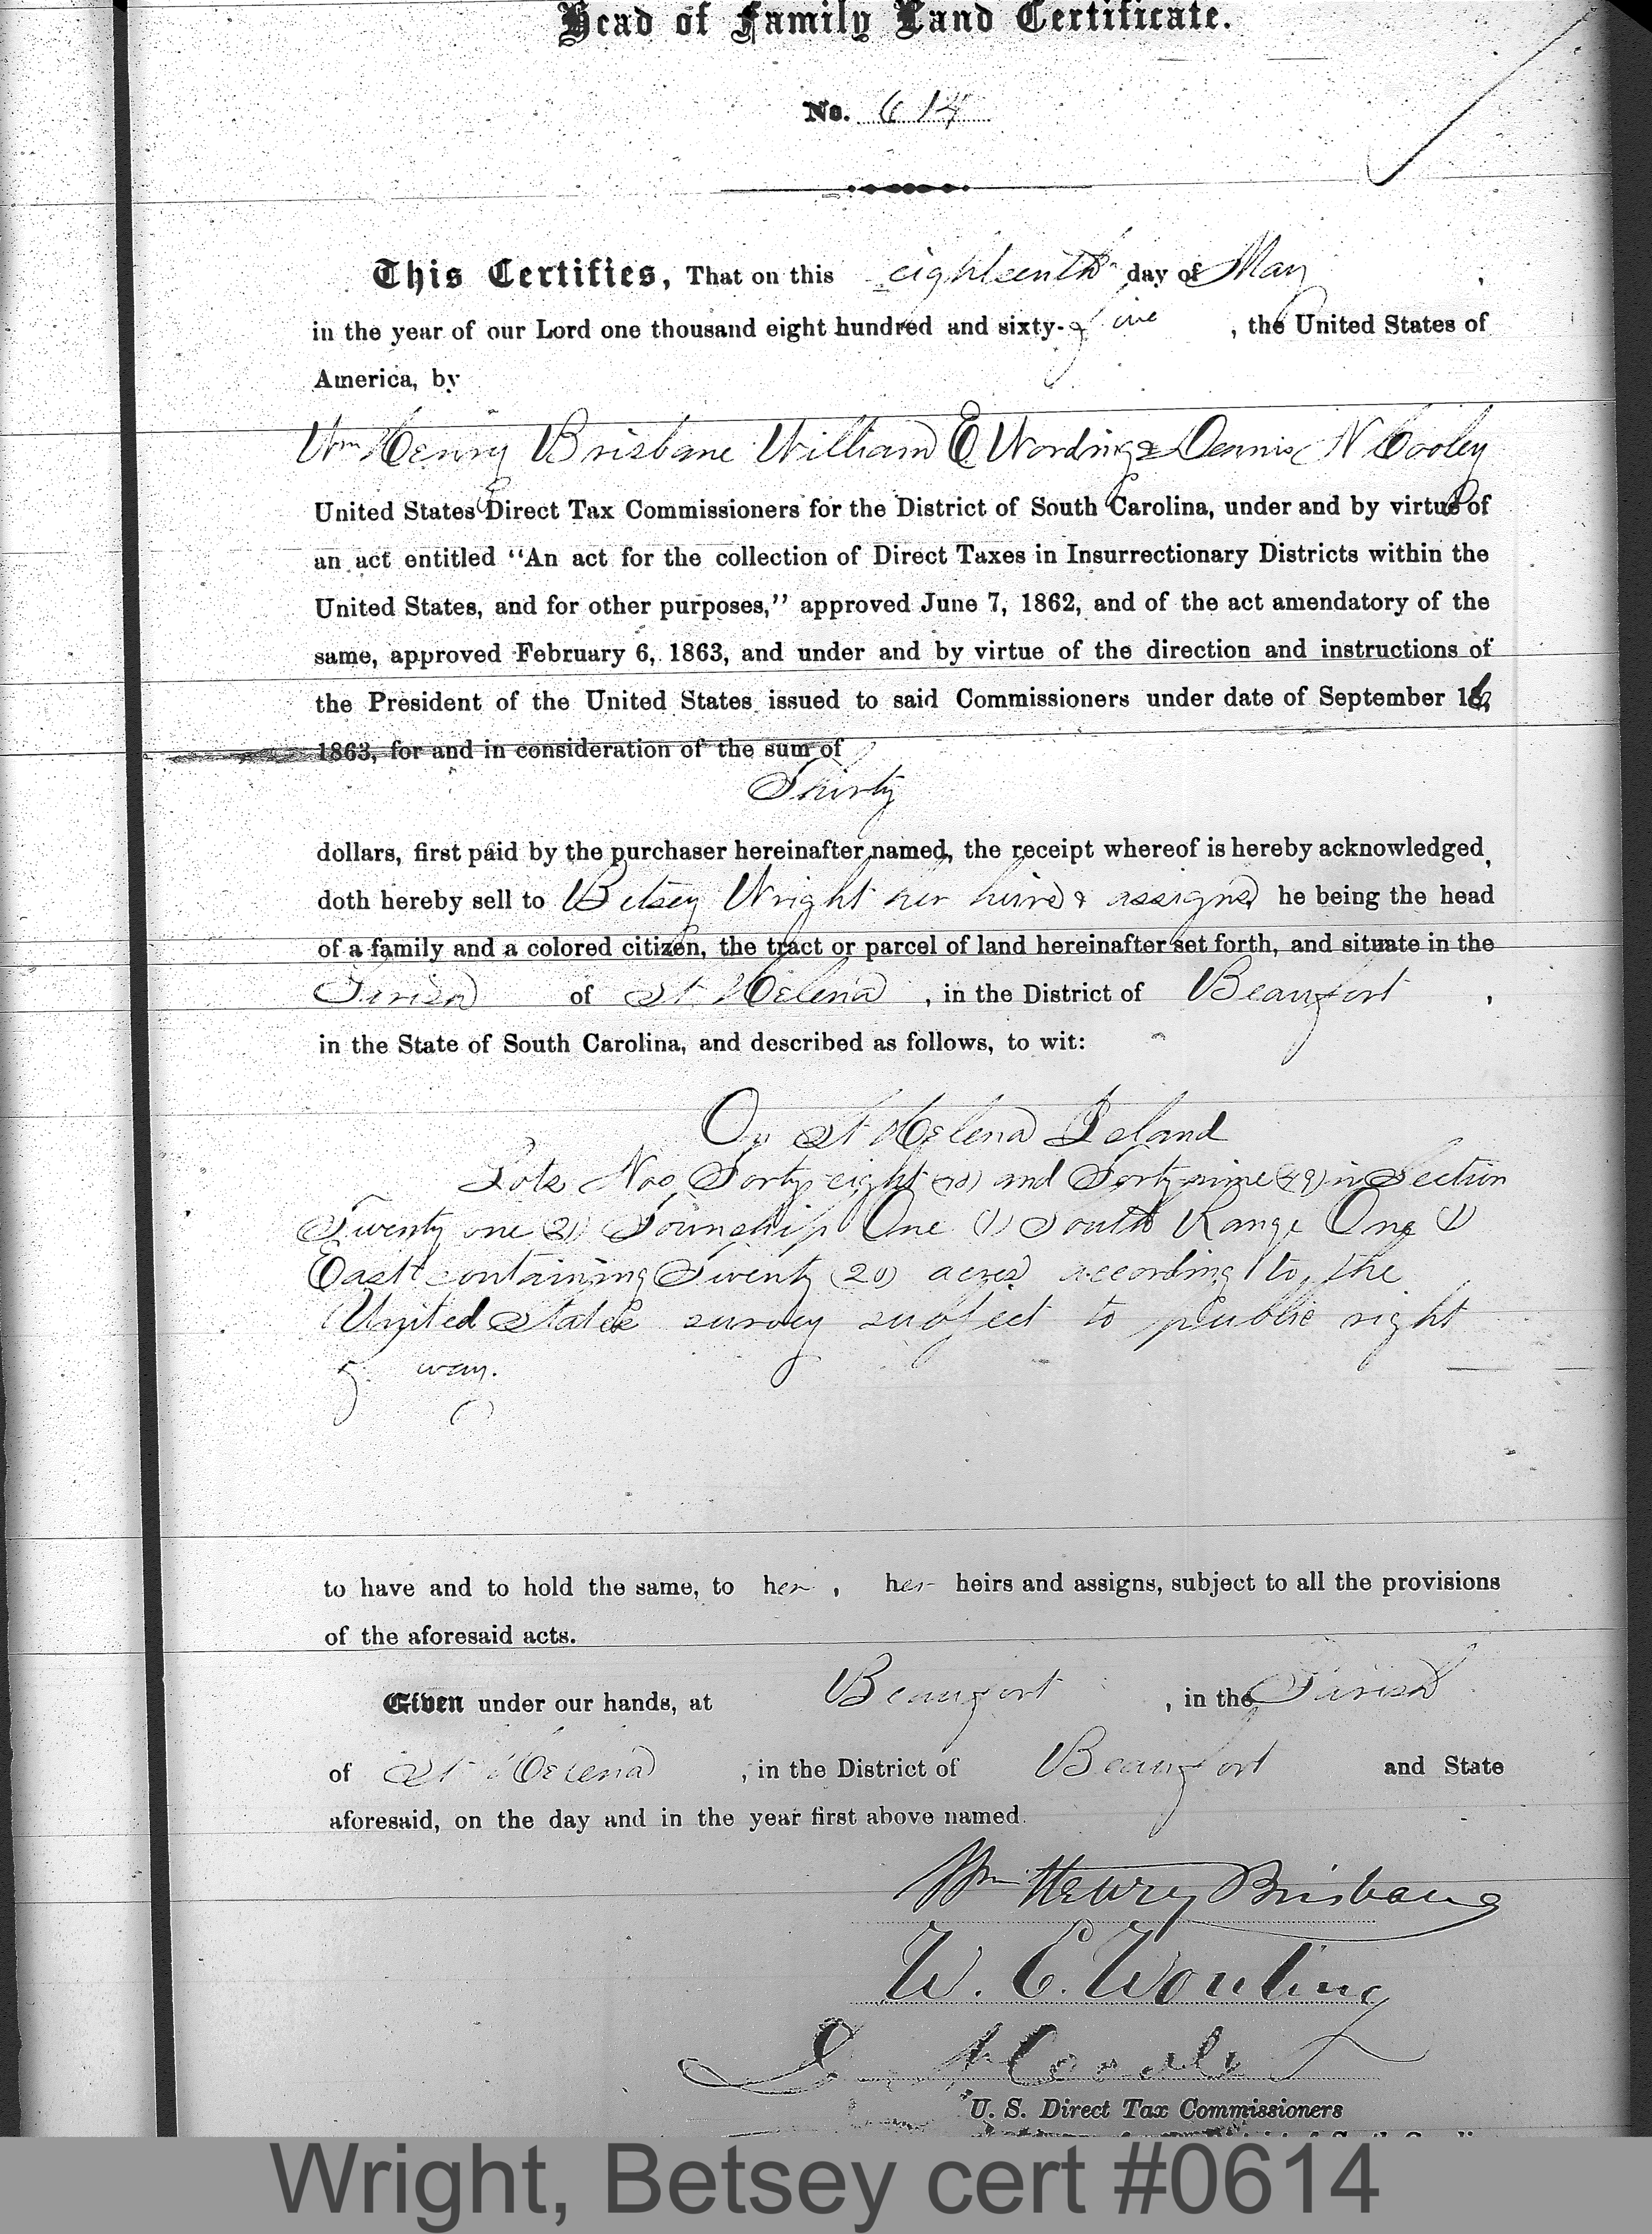 Head of Family Land Certificate.
No. 614
This Certifies, That on this eighteenth day of May,
in the year of our Lord one thousand eight hundred and sixty-five, the United States of
America, by
Wm Henry Brisbane William E Wording & Dennis N Cooley
United States Direct Tax Commissioners for the District of South Carolina, under and by virtue of
an act entitled “An act for the collection of Direct Taxes in Insurrectionary Districts within the
United States, and for other purposes,” approved June 7, 1862, and of the act amendatory of the
same, approved February 6, 1863, and under and by virtue of the direction and instructions of
the President of the United States issued to said Commissioners under date of September 16,
1863, for and in consideration of the sum of
Thirty
dollars, first paid by the purchaser hereinafter named, the receipt whereof is hereby acknowledged,
doth hereby sell to Betsey Wright her heirs & assigns he being the head
of a family and a colored citizen, the tract or parcel of land hereinafter set forth, and situate in the
Parish of St Helena, in the District of Beaufort,
in the State of South Carolina, and described as follows, to wit:
On St Helena Island
Lots Nos Forty-eight (48) and Forty nine (49) in Section
Twenty one (21) Township One (1) South Range One (1)
East containing Twenty (20) acres according to the
United States survey subject to public right
of way.
to have and to hold the same, to her, her heirs and assigns, subject to all the provisions
of the aforesaid acts.
Given under our hands, at Beaufort, in the Parish
of St Helena, in the District of Beaufort and State
aforesaid, on the day and in the year first above named.
Wm Henry Brisbane
W. E. Wording
D N Cooley
U. S. Direct Tax Commissioners
Wright, Betsey cert #0614